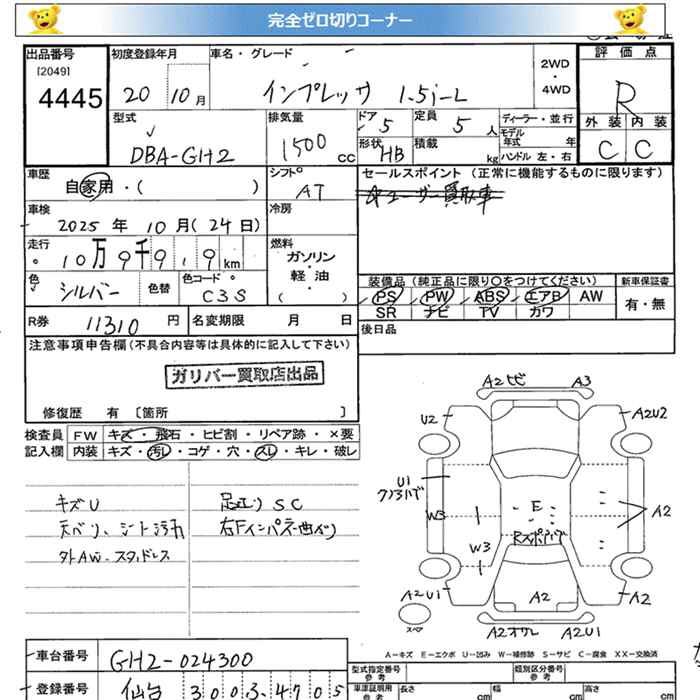 完全ゼロ切りコーナー
出品番号 初度登録年月 車名・グレード 2WD・4WD 評価点
[2049]
4445 20 10月 インプレッサ 1.5i-L R
型式 排気量 ドア 定員 ディーラー・並行 外装 内装
DBA-GH2 1500cc 5 5人 モデル年式 年 C C
形状 積載 ハンドル 左・右
HB kg
車歴 シフト セールスポイント (正常に機能するものに限ります)
自家用・( ) AT ユーザー買取車
車検 冷房
2025年10月(24日)
走行 燃料
10万9千9.9km ガソリン
軽油
( )
色 色替 色コード 装備品 (純正品に限り〇をつけてください) 新車保証書
シルバー C3S PS PW ABS エアB AW 有・無
SR ナビ TV カワ
R券 11310円 名変期限 月 日 後日品
注意事項申告欄(不具合内容等は具体的に記入して下さい)
ガリバー買取店出品
修復歴 有 〔箇所 〕
検査員 FW キズ・飛石・ヒビ割・リペア跡・×要
記入欄 内装 キズ・汚レ・コゲ・穴・スレ・キレ・破レ
キズU 足廻りSC
天ベリ、シート汚れ 右Fインパネ曲り
外AW・スタッドレス
A2ヒビ A3
U2 A2U2
U1
W3 A2
E
W3
A2
A2U1 A2U1
スペア
A2オサレ A2U1
A-キズ E-エクボ U-凹み W-補修跡 S-サビ C-腐食 XX-交換済
車台番号 GH2-024300 型式指定番号 類別区分番号
参考 参考
登録番号 仙台 300 3 4705 車庫証明用 長さ 幅 高さ
参考 cm cm cm